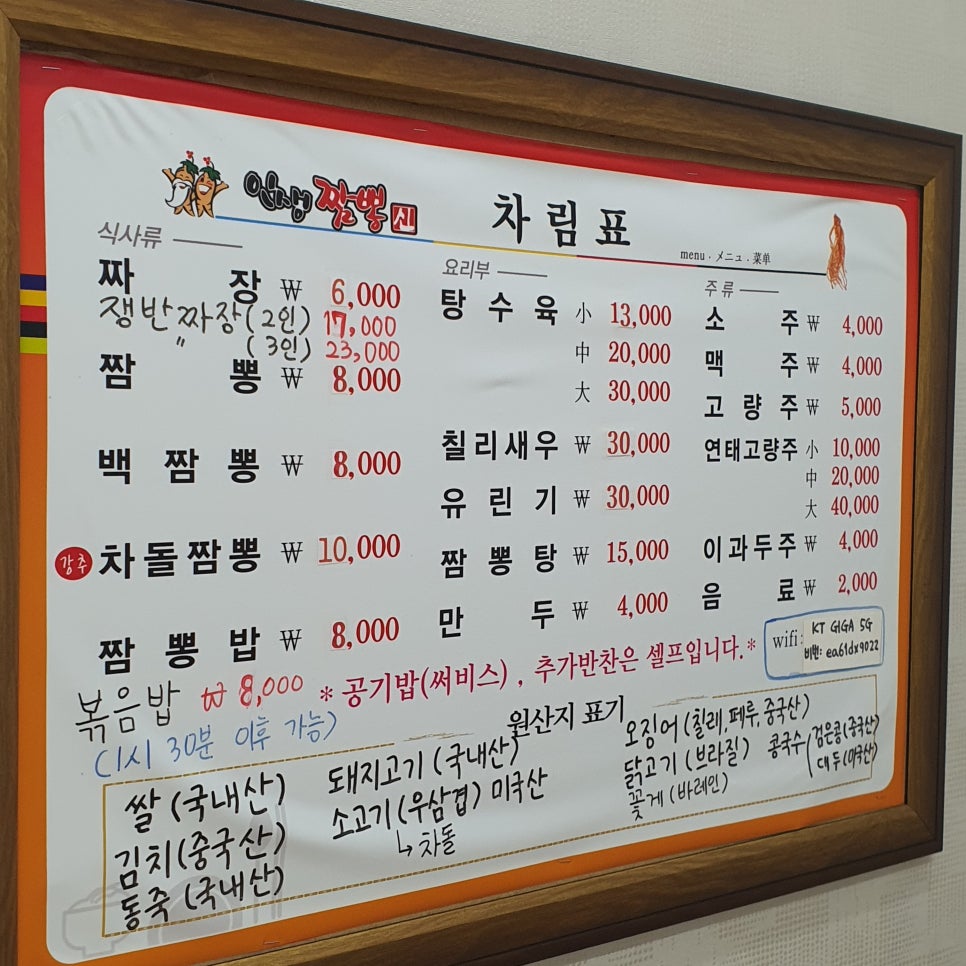 인생짬뽕
차림표
menu . メニュ . 菜単
식사류
짜장 ₩ 6,000
쟁반짜장(2인) 17,000
" (3인) 23,000
짬뽕 ₩ 8,000
백짬뽕 ₩ 8,000
강추 차돌짬뽕 ₩ 10,000
짬뽕밥 ₩ 8,000
볶음밥 ₩ 8,000
(1시 30분 이후 가능)
요리부
탕수육 小 13,000
中 20,000
大 30,000
칠리새우 ₩ 30,000
유린기 ₩ 30,000
짬뽕탕 ₩ 15,000
만두 ₩ 4,000
주류
소주 ₩ 4,000
맥주 ₩ 4,000
고량주 ₩ 5,000
연태고량주 小 10,000
中 20,000
大 40,000
이과두주 ₩ 4,000
음료 ₩ 2,000
wifi: KT GIGA 5G
비번: ea61dx9022
* 공기밥(써비스) , 추가반찬은 셀프입니다. *
원산지 표기
쌀 (국내산)
김치(중국산)
동죽 (국내산)
돼지고기 (국내산)
소고기 (우삼겹) 미국산
↳ 차돌
오징어 (칠레, 페루, 중국산)
닭고기 (브라질)
꽃게 (바레인)
콩국수 (검은콩(중국산)
대두(미국산)